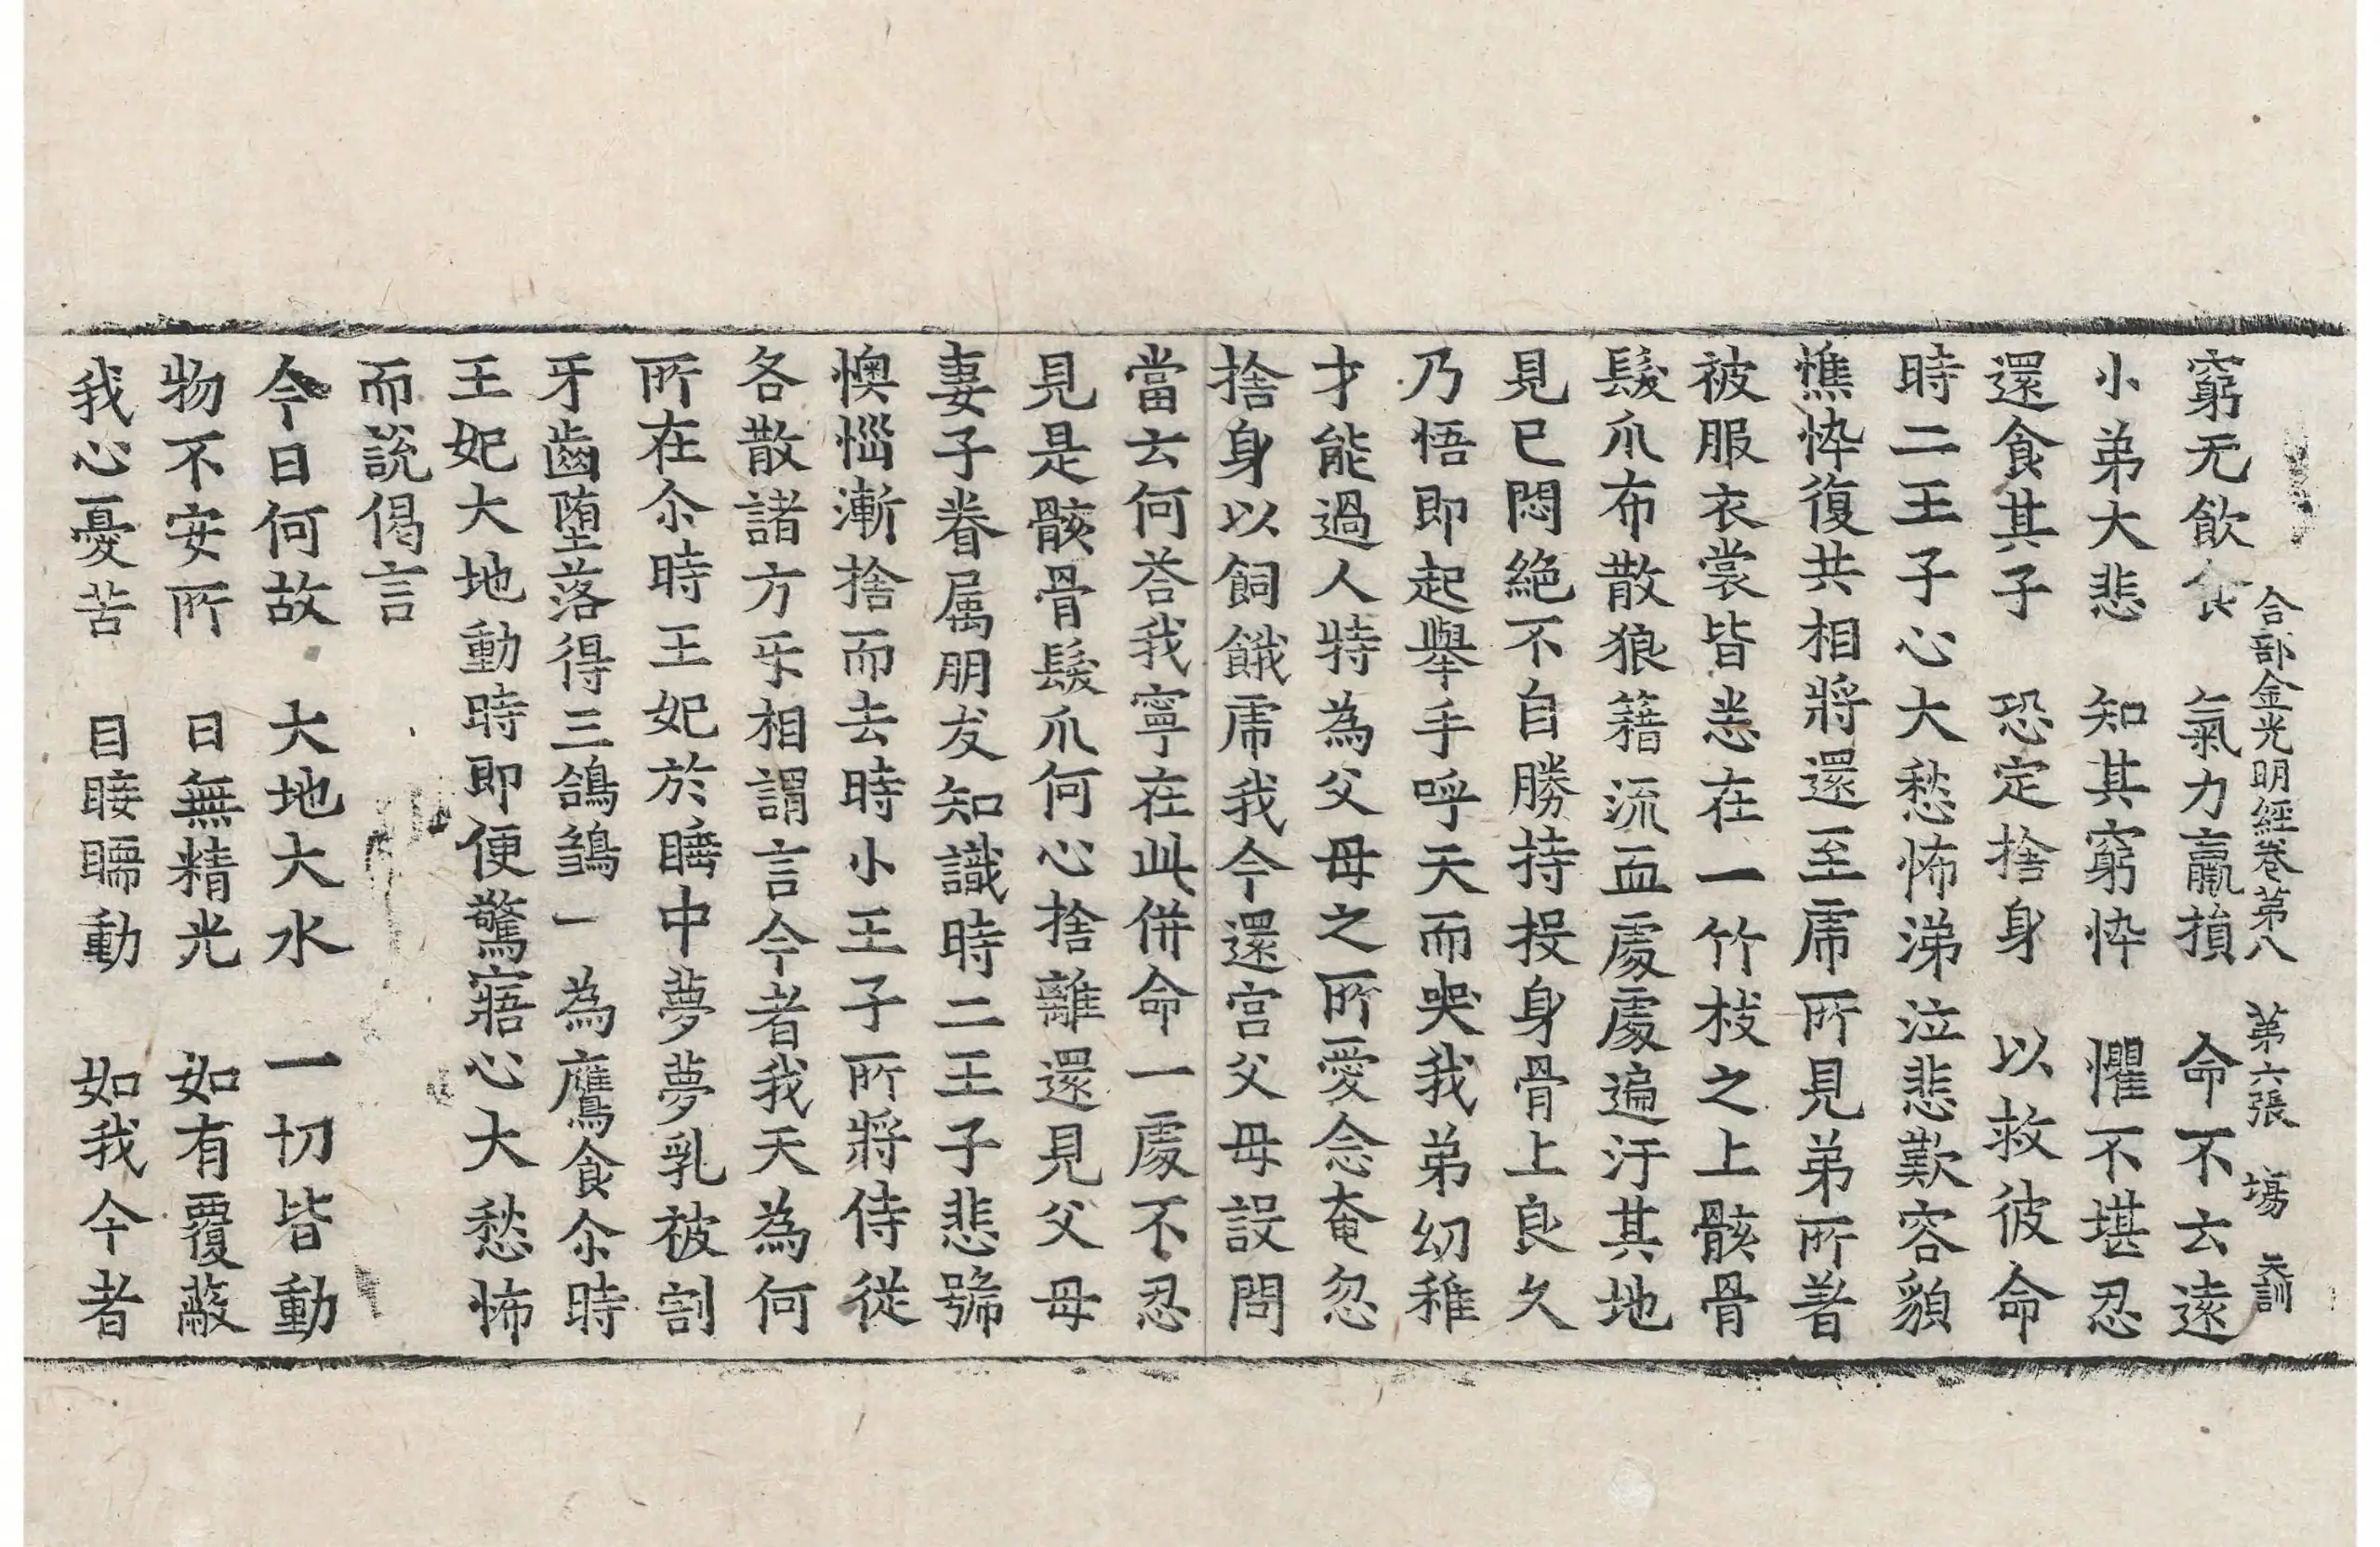 合部金光明經卷第八　第六張　場　天訓
窮无飲食　氣力羸損　命不云遠
小弟大悲　知其窮悴　懼不堪忍
還食其子　恐定捨身　以救彼命
時二王子心大愁怖涕泣悲歎容貌
憔悴復共相將還至虎所見弟所著
被服衣裳皆悉在一竹枝之上骸骨
髮爪布散狼籍流血處處遍汙其地
見已悶絕不自勝持投身骨上良久
乃悟即起舉手呼天而哭我弟幼稚
才能過人特為父母之所愛念奄忽
捨身以飼餓虎我今還宮父母設問
當云何荅我寧在此併命一處不忍
見是骸骨髮爪何心捨離還見父母
妻子眷属朋友知識時二王子悲號
懊惱漸捨而去時小王子所將侍從
各散諸方乐相謂言今者我天為何
所在尒時王妃於睡中夢夢乳被割
牙齒堕落得三鴿鶵一為鷹食尒時
王妃大地動時即便驚寤心大愁怖
而說偈言
今日何故　大地大水　一切皆動
物不安所　日無精光　如有覆蔽
我心憂苦　目睫瞤動　如我今者